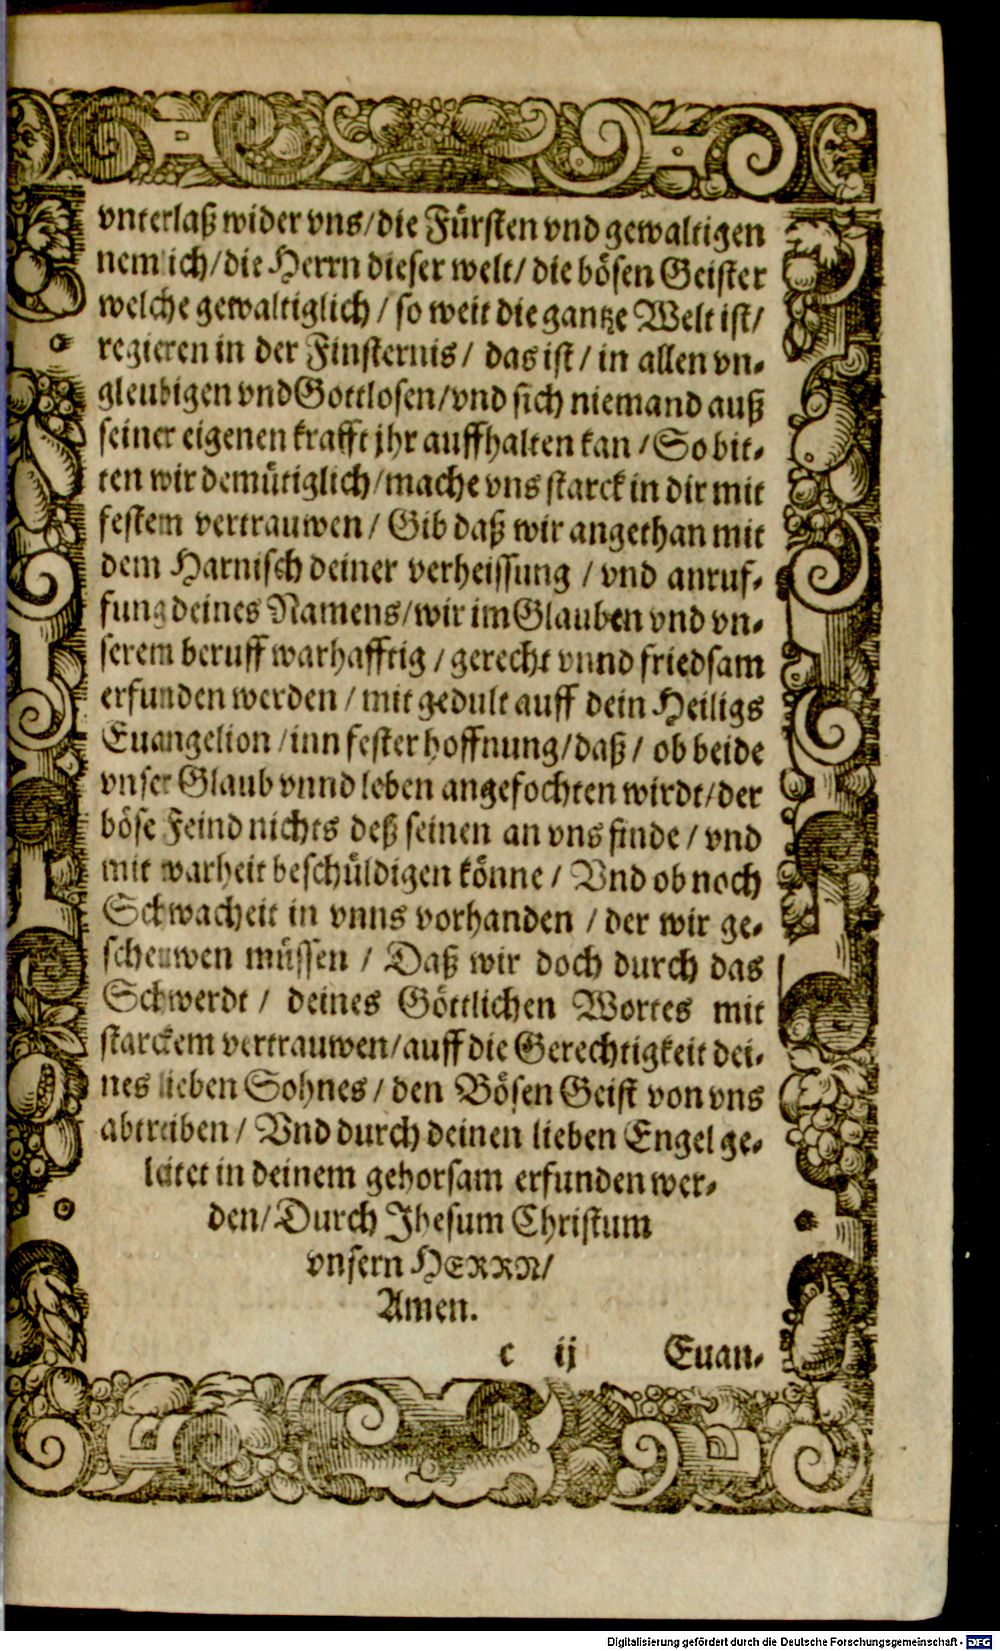 vnterlaß wider vns/die Fürsten vnd gewaltigen
nemlich/die Herrn dieser welt/ die bösen Geister
welche gewaltiglich / so weit die gantze Welt ist/
regieren in der Finsternis/ das ist/ in allen vn-
gleubigen vnd Gottlosen/vnd sich niemand auß
seiner eigenen krafft jhr auffhalten kan /So bit-
ten wir demütiglich/mache vns starck in dir mit
festem vertrauwen/ Gib daß wir angethan mit
dem Harnisch deiner verheissung / vnd anruf-
fung deines Namens/wir im Glauben vnd vn-
serem beruff warhafftig / gerecht vnnd friedsam
erfunden werden / mit gedult auff dein Heiligs
Euangelion /inn fester hoffnung/daß/ ob beide
vnser Glaub vnnd leben angefochten wirdt/der
böse Feind nichts deß seinen an vns finde/ vnd
mit warheit beschüldigen könne / Vnd ob noch
Schwacheit in vnns vorhanden / der wir ge-
scheuwen müssen / Daß wir doch durch das
Schwerdt / deines Göttlichen Wortes mit
starckem vertrauwen/auff die Gerechtigkeit dei-
nes lieben Sohnes / den Bösen Geist von vns
abtreiben/ Vnd durch deinen lieben Engel ge-
leitet in deinem gehorsam erfunden wer-
den/Durch Jhesum Christum
vnsern HERRN/
Amen.
c ij Euan-
Digitalisierung gefördert durch die Deutsche Forschungsgemeinschaft - DFG